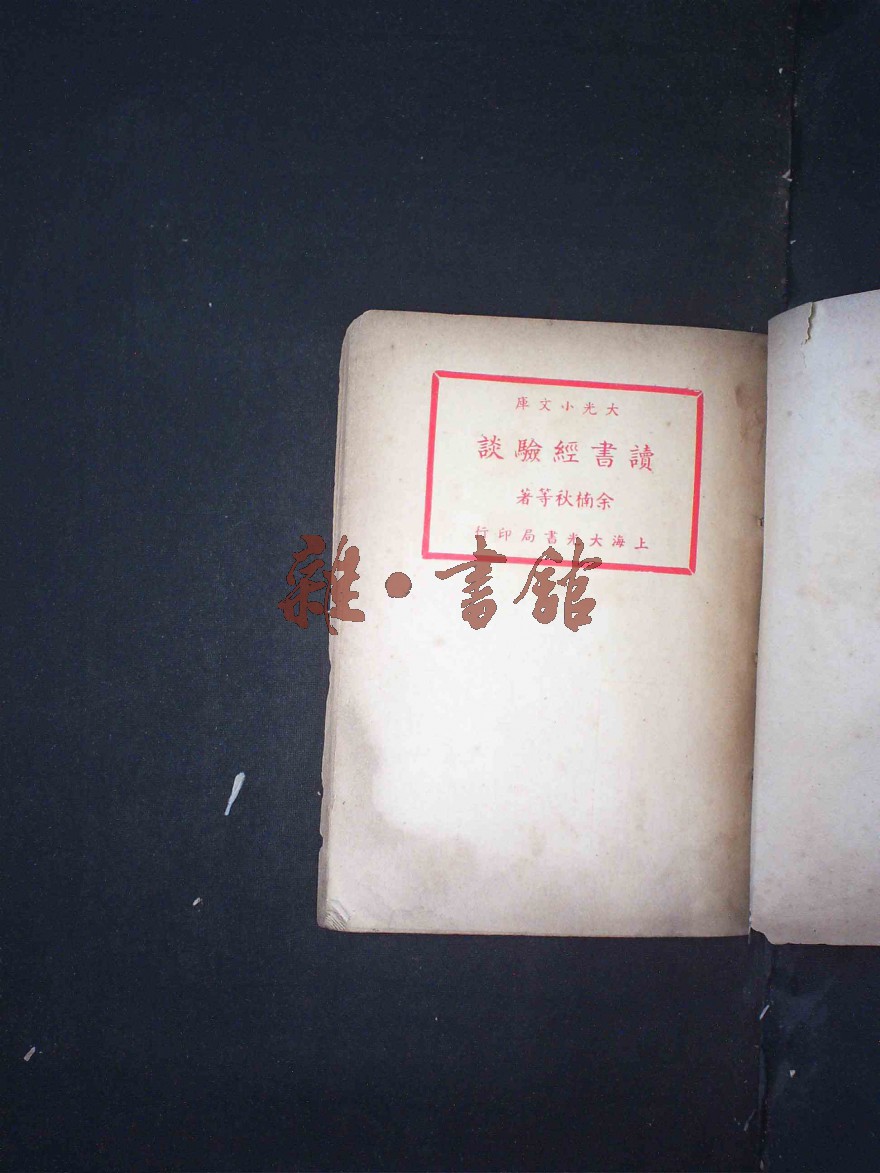 大光小文庫
讀書經驗談
余楠秋等著
上海大光書局印行
雜·書館